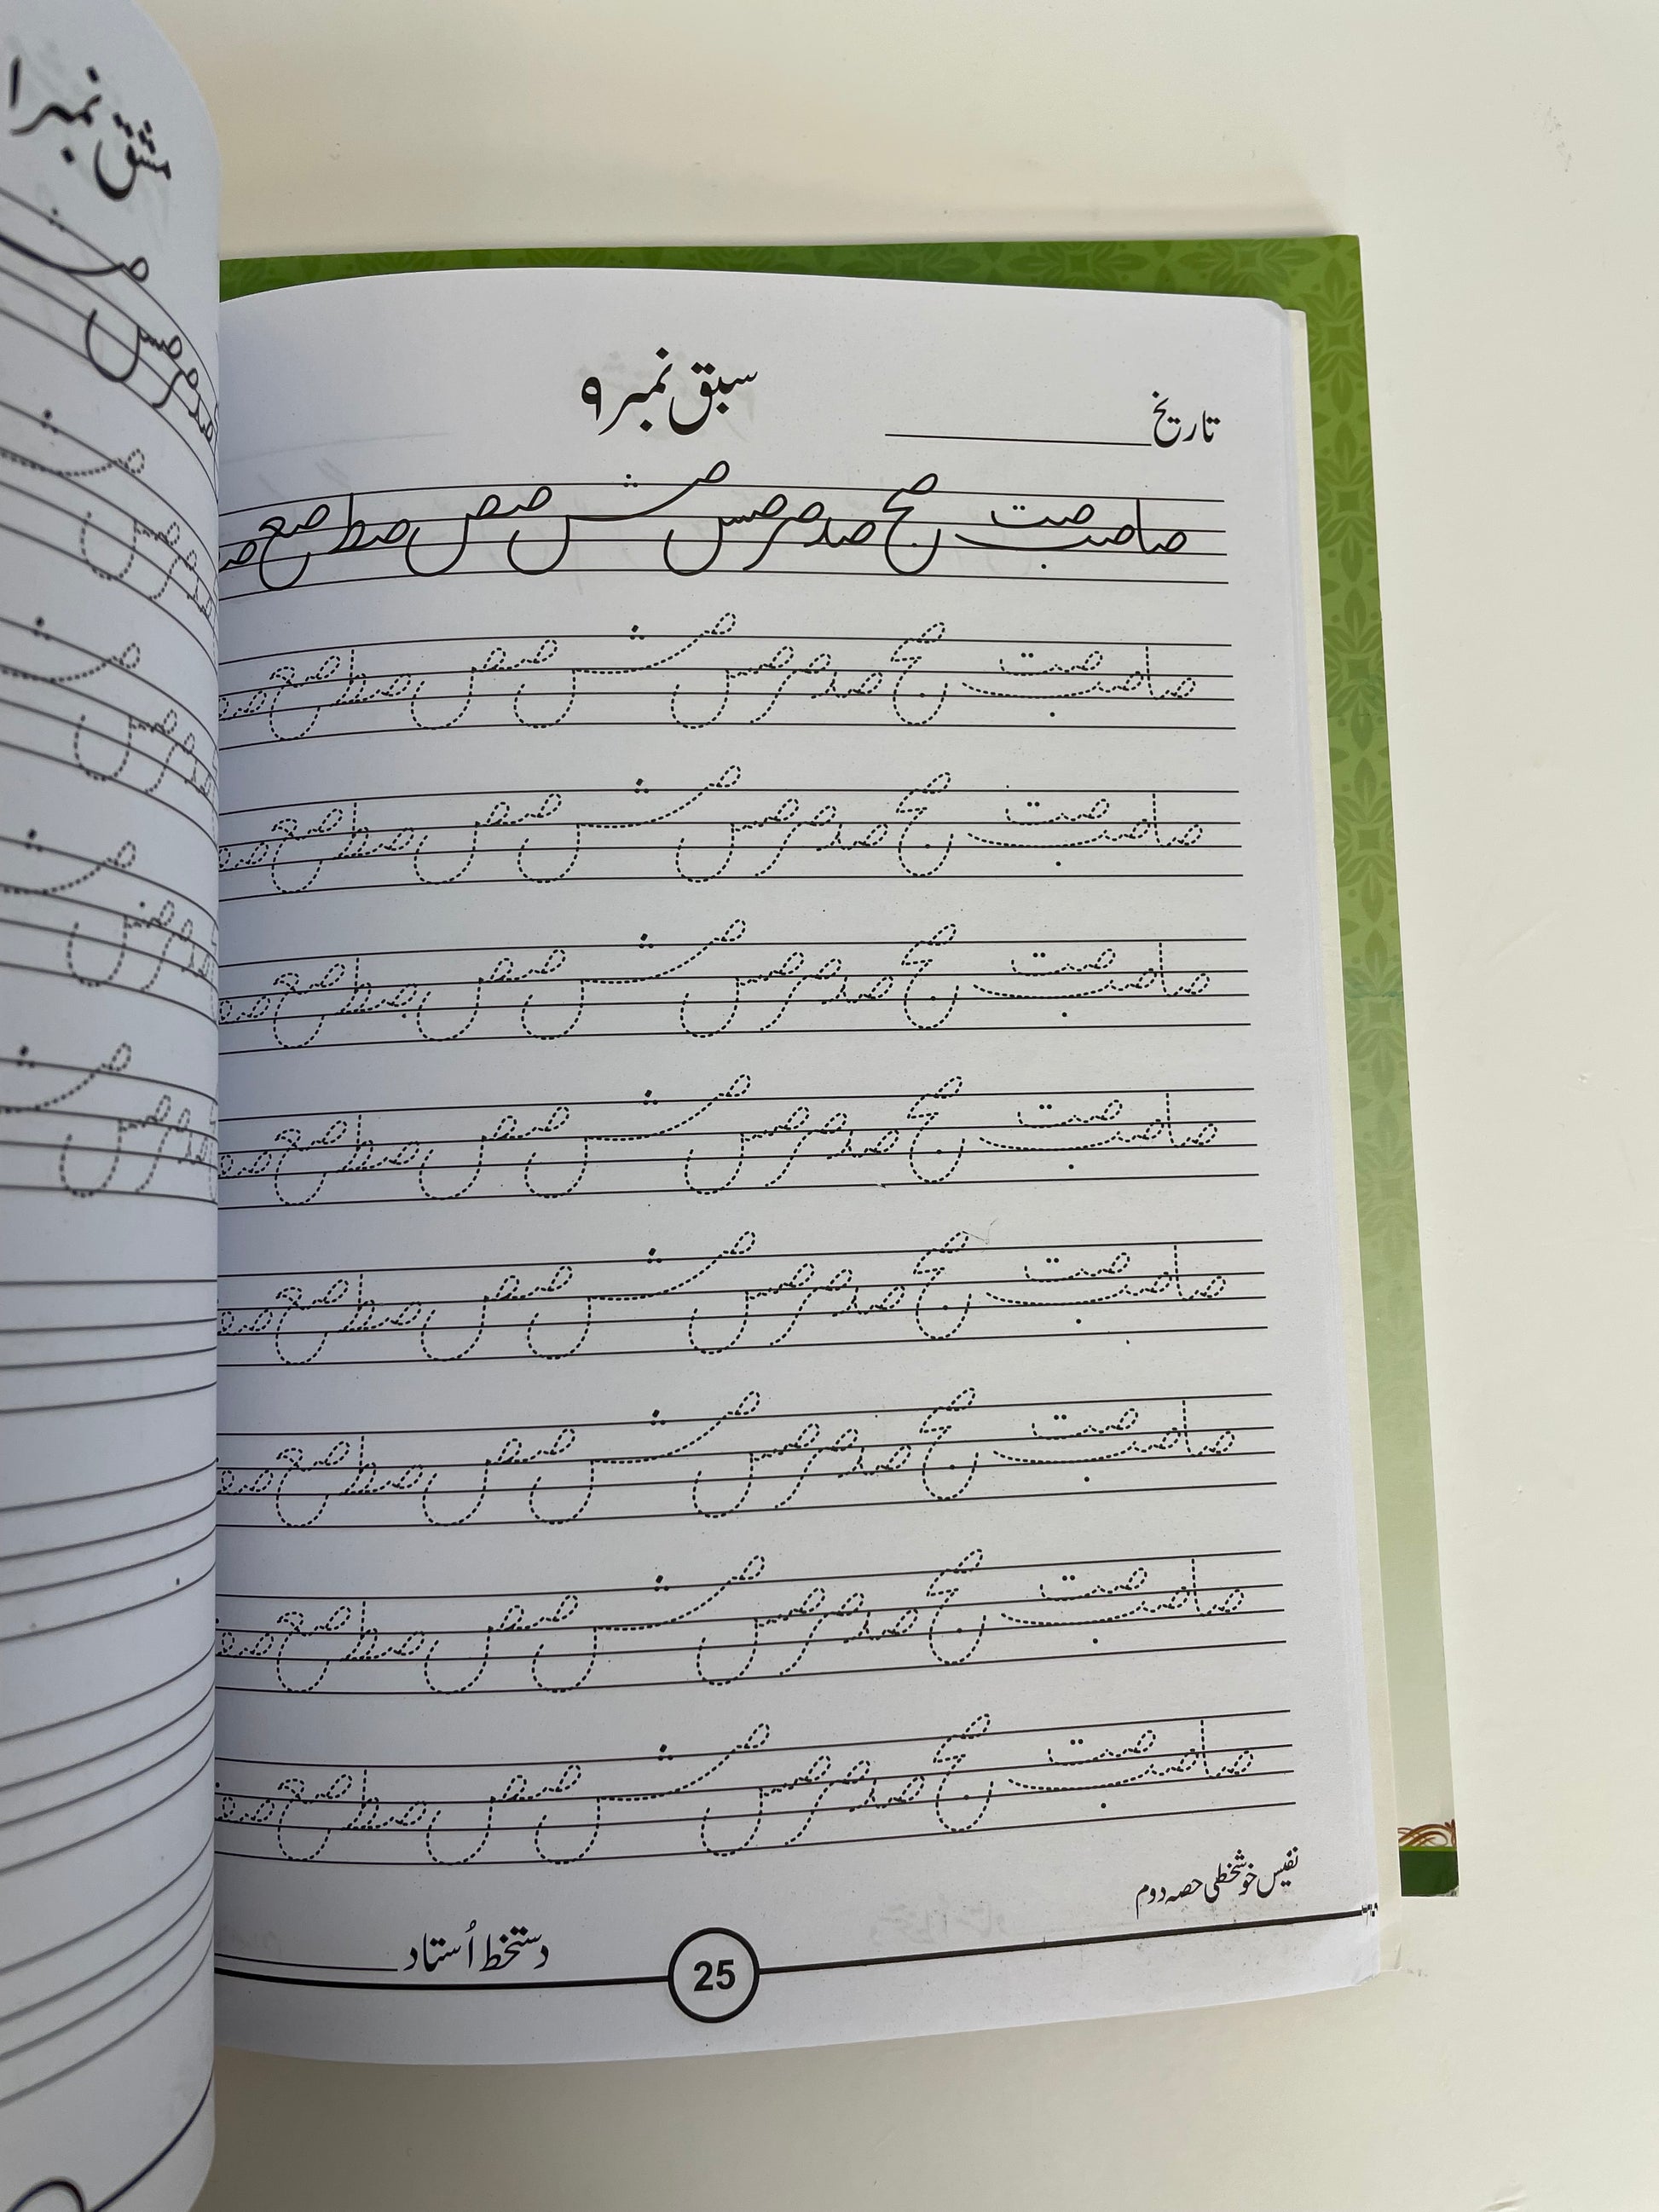 مشق نمبر ا
سبق نمبر ۹
تاریخ
صا صب صت صج صد صر صس صش صص صط صع
صا صب صت صج صد صر صس صش صص صط صع
صا صب صت صج صد صر صس صش صص صط صع
صا صب صت صج صد صر صس صش صص صط صع
صا صب صت صج صد صر صس صش صص صط صع
صا صب صت صج صد صر صس صش صص صط صع
صا صب صت صج صد صر صس صش صص صط صع
صا صب صت صج صد صر صس صش صص صط صع
صا صب صت صج صد صر صس صش صص صط صع
نفیس خوشخطی حصہ دوم
دستخط اُستاد
25